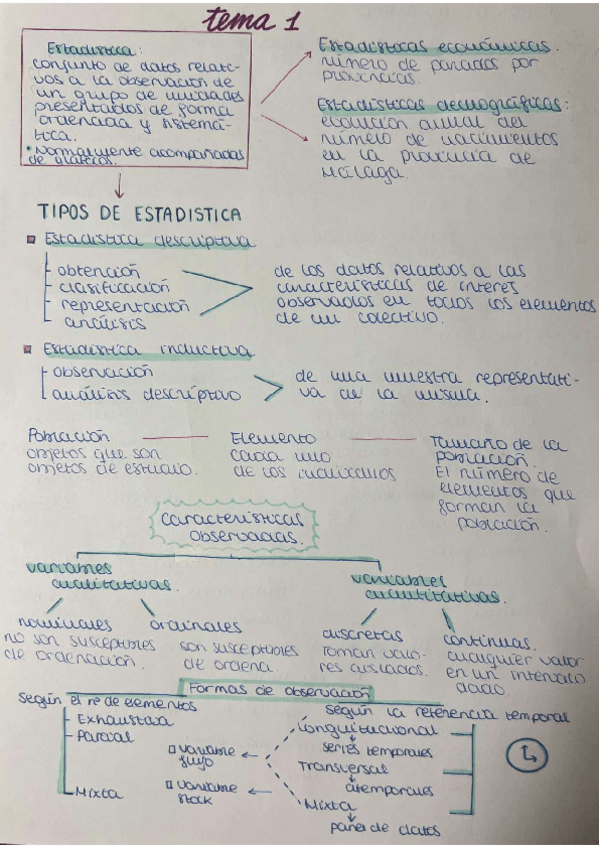 tema 1
Estadística:
conjunto de datos relati-
vos a la observación de
un grupo de unidades
presentados de forma
ordenada y sistemá-
tica.
• Normalmente acompañadas
de gráficos.
Estadísticas económicas.
número de parados por
provincias.
Estadísticas demográficas:
evolución anual del
número de nacimientos
en la provincia de
Málaga.
TIPOS DE ESTADISTICA
Estadística descriptiva
obtención
clasificación
representación
análisis
de los datos relativos a las
características de interés
observados en todos los elementos
de un colectivo.
Estadística inductiva
observación
análisis descriptivo
de una muestra representati-
va de la misma.
Población
objetos que son
objetos de estudio.
Elemento
cada uno
de los individuos
Tamaño de la
población.
El número de
elementos que
forman la
población.
características
observadas.
variables
cualitativas.
variables
cuantitativas.
nominales
no son susceptibles
de ordenación.
ordinales
son susceptibles
de ordena.
discretas
toman valo-
res aislados.
continuas.
cualquier valor
en un intervalo
dado.
Formas de observación
Según el nº de elementos
Exhaustiva
Parcial
Mixta
según la referencia temporal
Longitudinal
series temporales
Transversal
atemporales
Mixta
panel de datos
variable
flujo
variable
stock